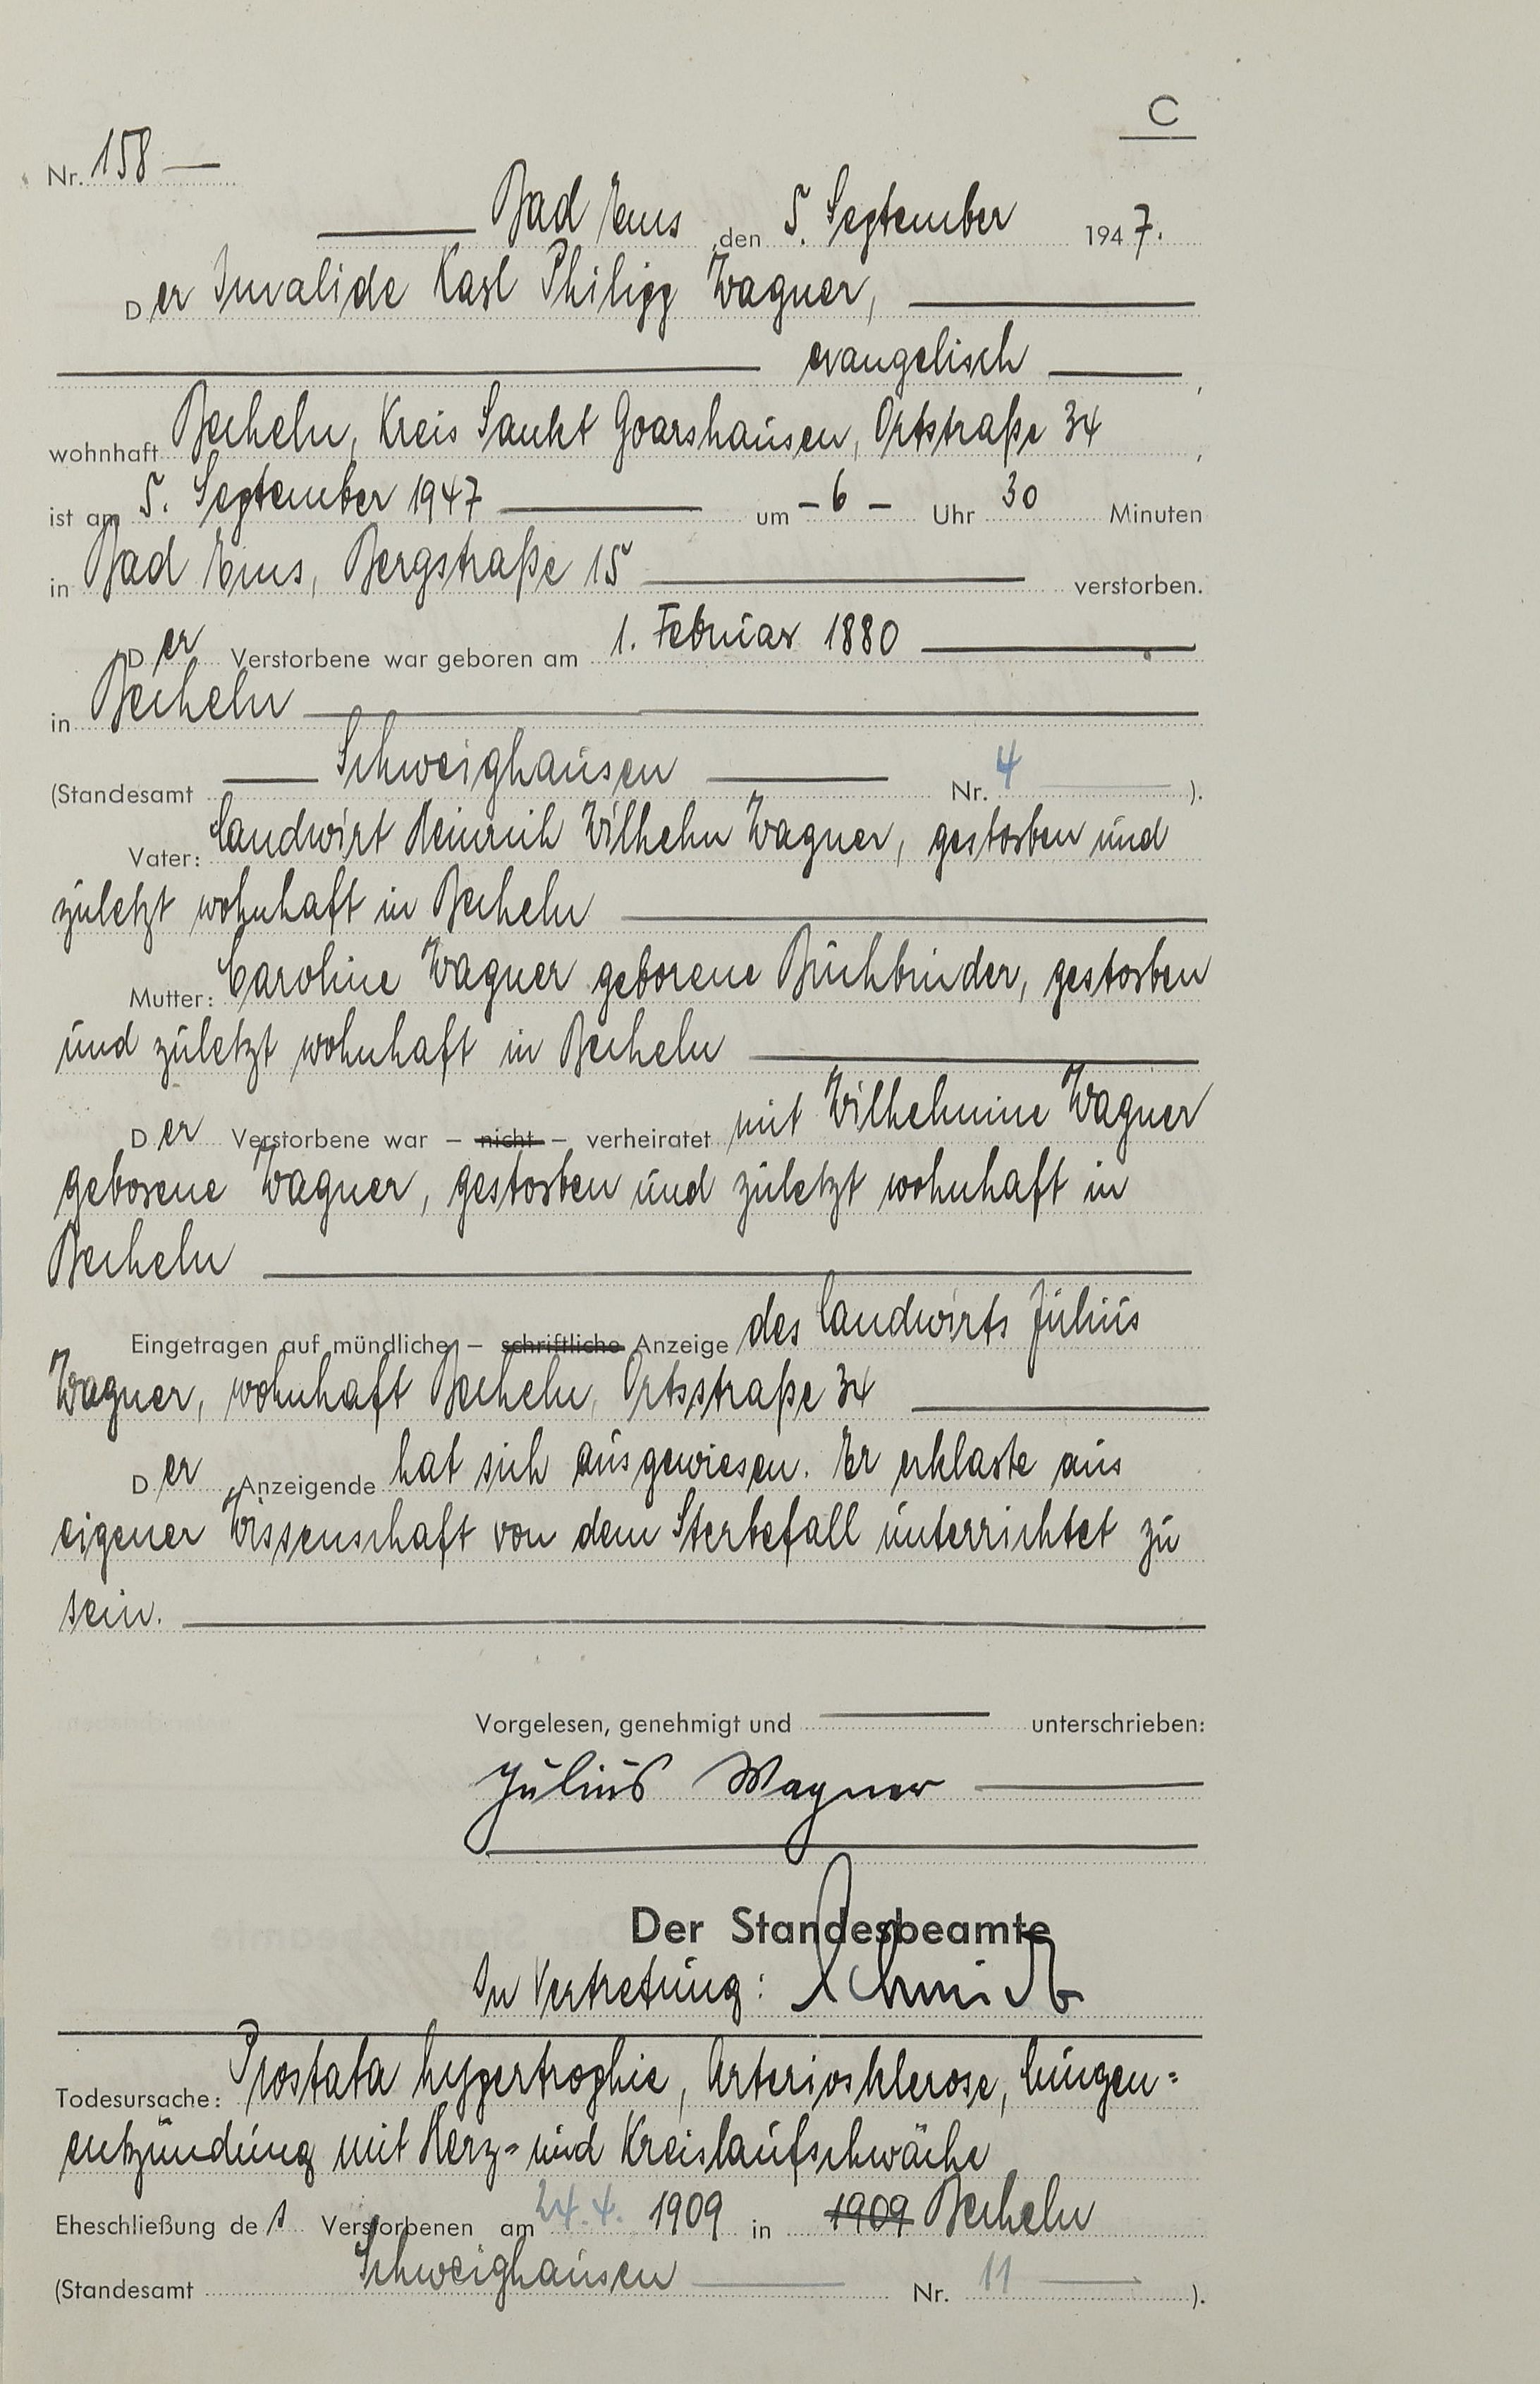 C
Nr. 158
Bad Ems, den 5. September 1947.
Der Invalide Karl Philipp Wagner,
evangelisch,
wohnhaft Becheln, Kreis Sankt Goarshausen, Ortstraße 34,
ist am 5. September 1947 um - 6 - Uhr 30 Minuten
in Bad Ems, Bergstraße 15 verstorben.
Der Verstorbene war geboren am 1. Februar 1880
in Becheln
(Standesamt Schweighausen Nr. 4).
Vater: Landwirt Heinrich Wilhelm Wagner, gestorben und
zuletzt wohnhaft in Becheln
Mutter: Caroline Wagner geborene Buchbinder, gestorben
und zuletzt wohnhaft in Becheln
Der Verstorbene war – nicht – verheiratet mit Wilhelmine Wagner
geborene Wagner, gestorben und zuletzt wohnhaft in
Becheln
Eingetragen auf mündliche – schriftliche Anzeige des Landwirts Julius
Wagner, wohnhaft Becheln, Ortsstraße 34
Der Anzeigende hat sich ausgewiesen. Er erklarte aus
eigener Wissenschaft von dem Sterbefall unterrichtet zu
sein.
Vorgelesen, genehmigt und unterschrieben:
Julius Wagner
Der Standesbeamte
In Vertretung: Schmidt
Todesursache: Prostata hypertrophie, Arteriosklerose, Lungen=
entzündung mit Herz= und Kreislaufschwäche
Eheschließung des Verstorbenen am 24.4. 1909 in 1909 Becheln
(Standesamt Schweighausen Nr. 11).